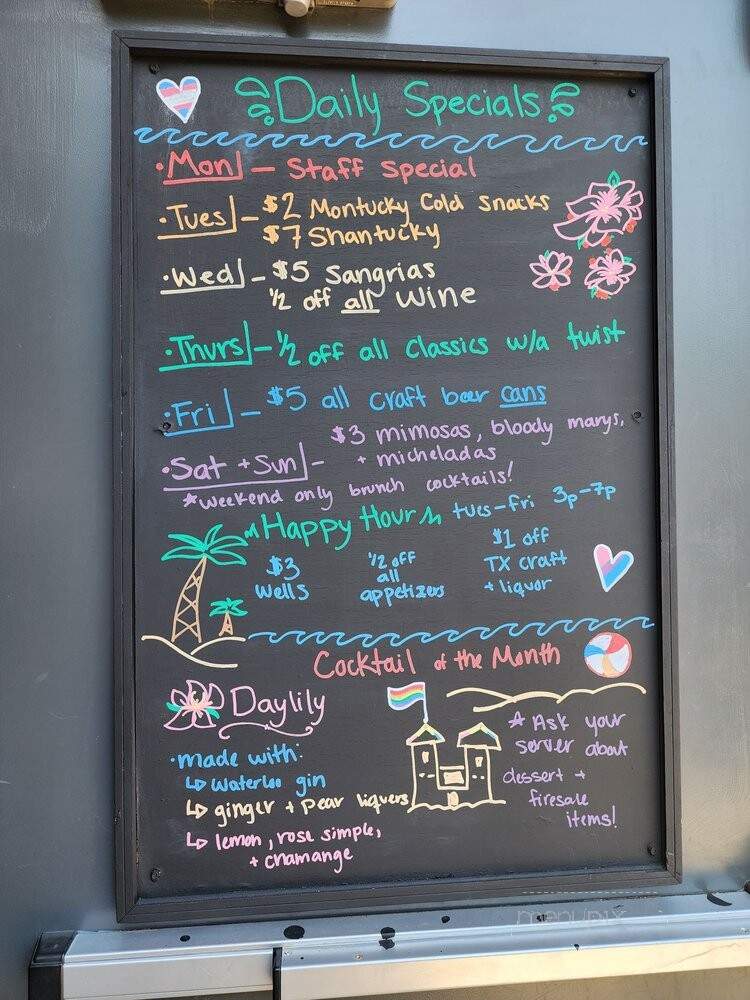 Daily Specials
·Mon - Staff Special
·Tues - $2 Montucky Cold Snacks
$7 Shantucky
·Wed - $5 Sangrias
1/2 off all wine
·Thurs - 1/2 off all Classics w/a twist
·Fri - $5 all craft beer cans
·Sat + Sun - $3 mimosas, bloody marys,
+ micheladas
*weekend only brunch cocktails!
Happy Hour tues-fri 3p-7p
$3
wells
1/2 off
all
appetizers
$1 off
TX craft
+ liquor
Cocktail of the Month
Daylily
·made with:
↳ Waterloo gin
↳ ginger + pear liquers
↳ lemon, rose simple,
+ chamange
* Ask your
server about
dessert +
firesale
items!
menupix